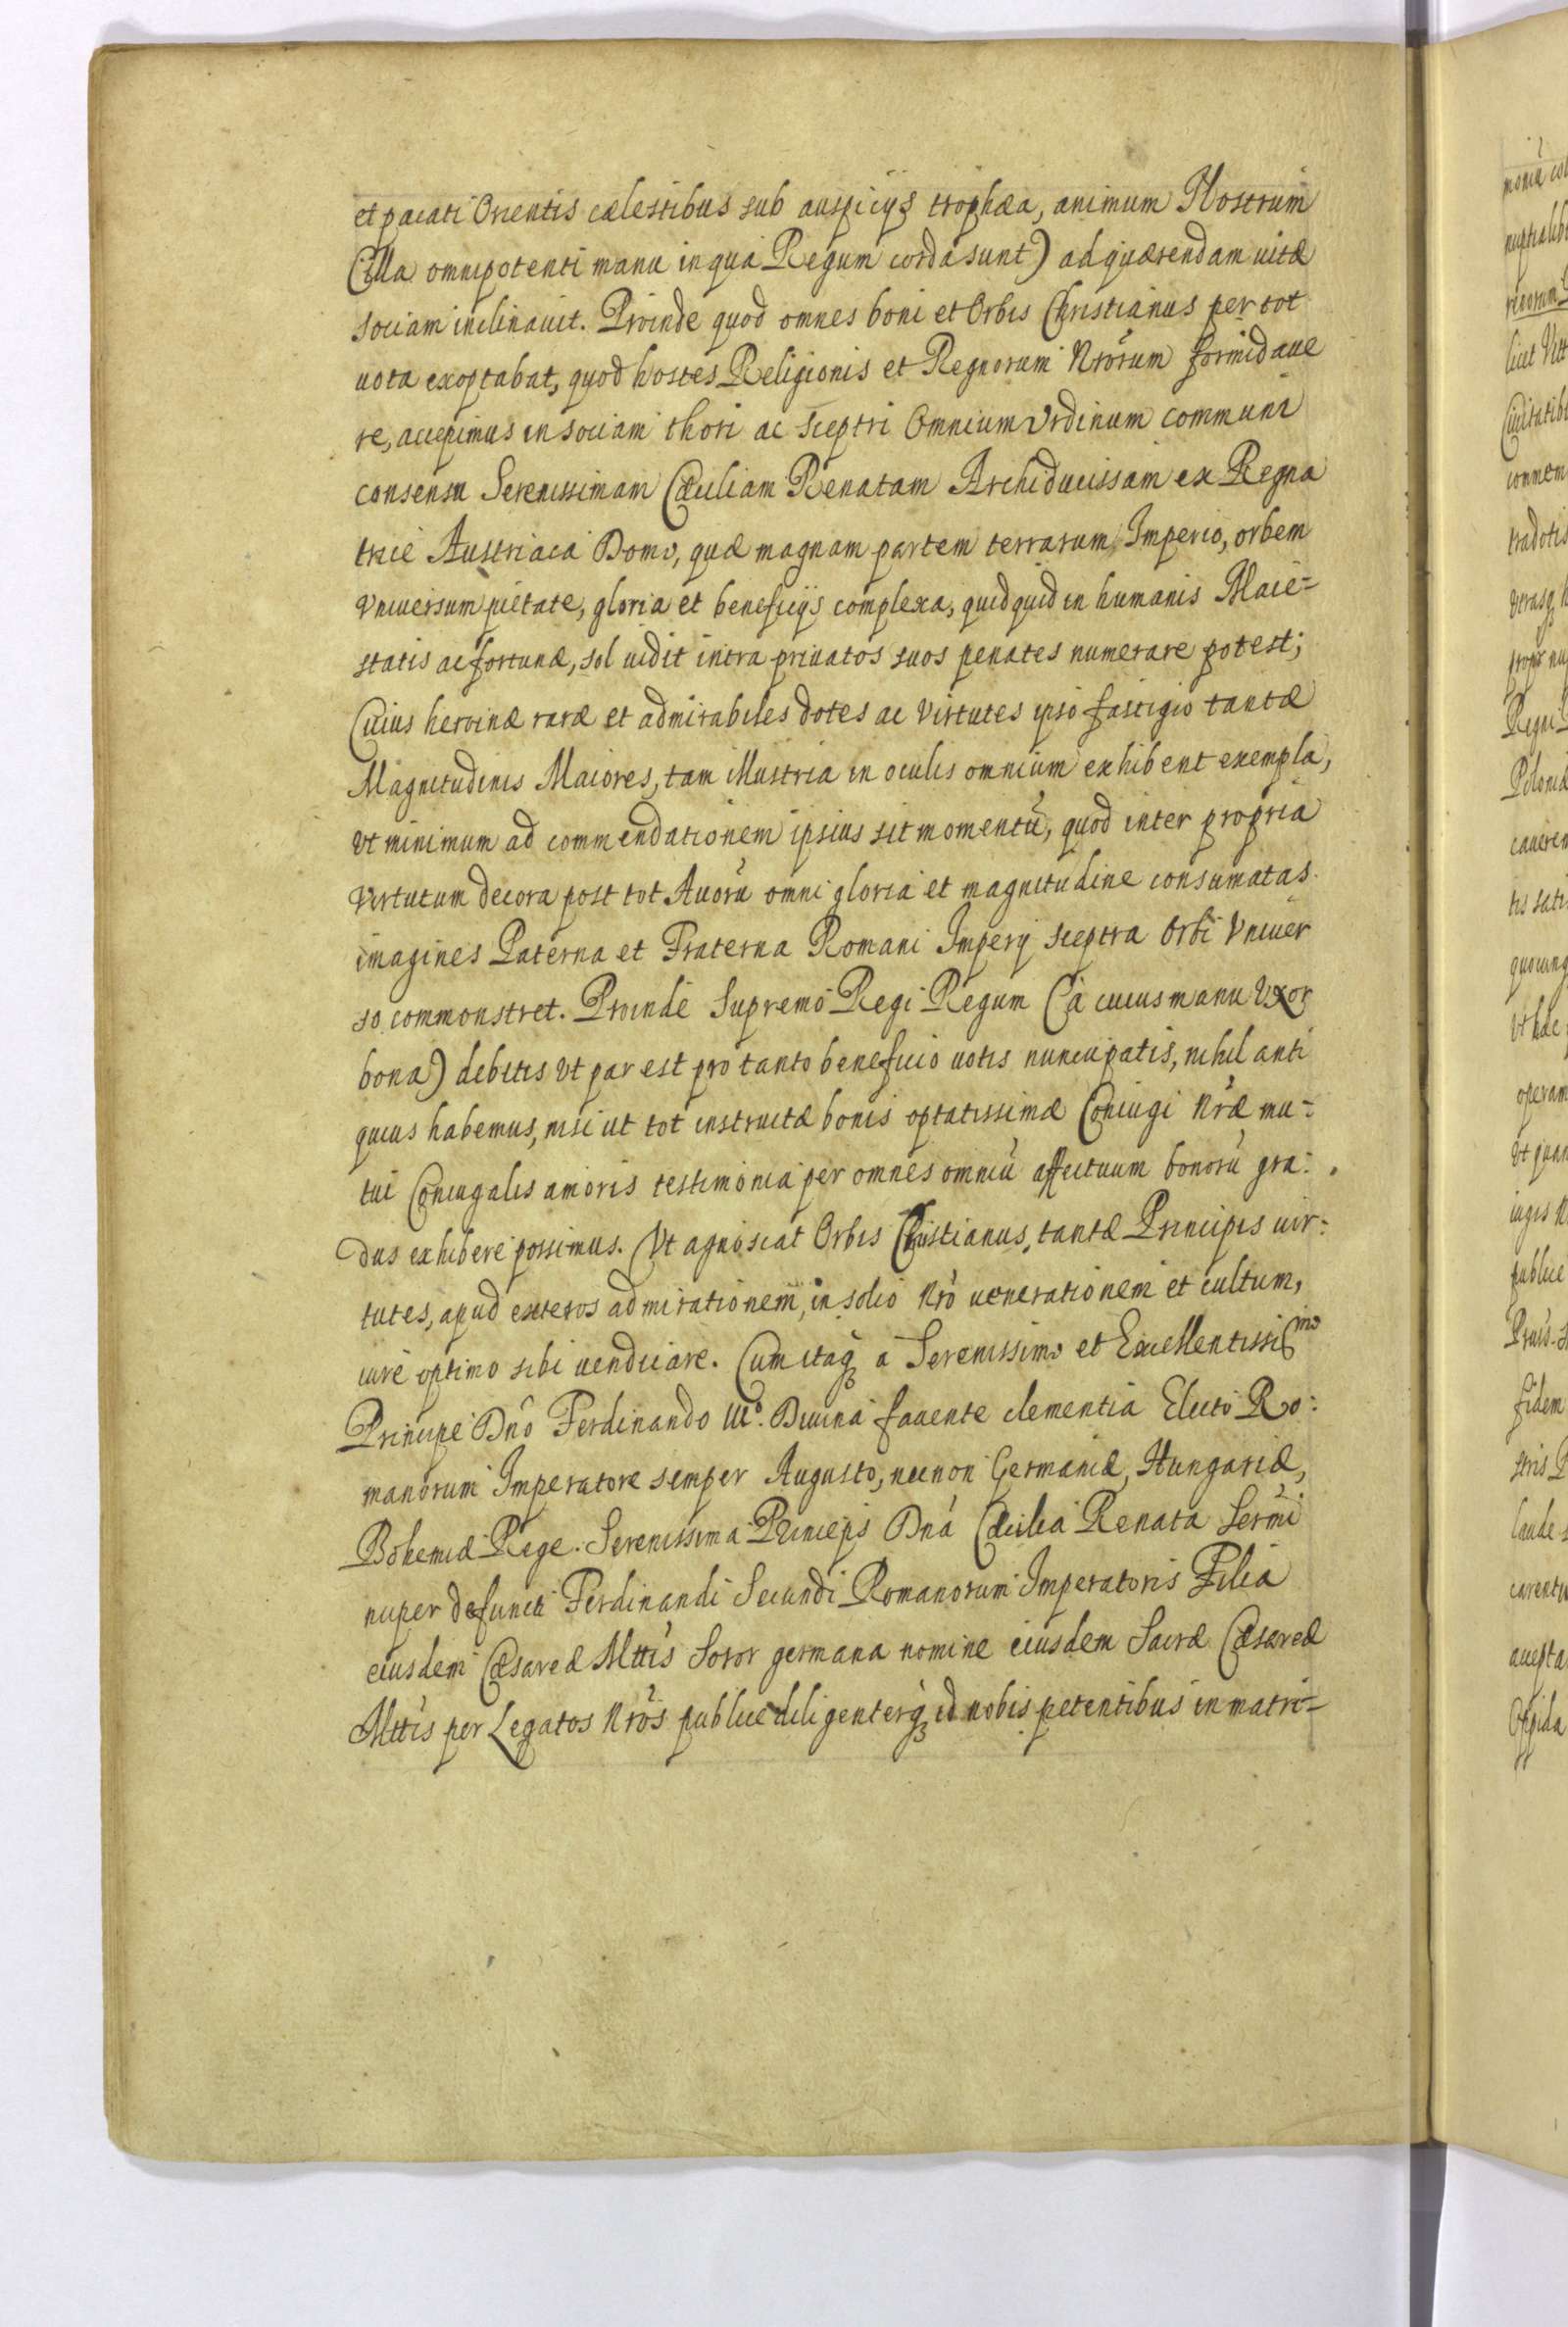 et pacati Orientis cælestibus sub auspicijs trophæa, animum Nostrum
(illa omnipotenti manu in qua Regum corda sunt) ad quærendam uitæ
sociam inclinauit. Proinde quod omnes boni et Orbis Christianus per tot
uota exoptabat, quod hostes Religionis et Regnorum Nrórum formidaue
re, accepimus in sociam thori ac sceptri Omnium Ordinum communi
consensu Serenissimam Cæciliam Renatam Archiducissam ex Regna
trice Austriaca Domo, quæ magnam partem terrarum Imperio, orbem
Vniuersum pietate, gloria et beneficijs complexa, quidquid in humanis Maie=
statis ac fortunæ, sol uidit intra priuatos suos penates numerare potest;
Cuius heroinæ raræ et admirabiles dotes ac Virtutes ipso fastigio tantæ
Magnitudinis Maiores, tam illustria in oculis omnium exhibent exempla,
Vt minimum ad commendationem ipsius sit momentũ, quod inter propria
Virtutum decora post tot Auorũ omni gloria et magnitudine consumatas
imagines Paterna et Fraterna Romani Imperij sceptra Orbi Vniuer
so commonstret. Proinde Supremo Regi Regum (à cuius manu Vxor
bona) debitis Vt par est pro tanto beneficio uotis nuncupatis, nihil anti
quius habemus, nisi ut tot instructæ bonis optatissimæ Coniugi Nræ mu=
tui Coniugalis amoris testimonia per omnes omniũ affectuum bonorũ gra:
dus exhibere possimus. Vt agnoscat Orbis Christianus, tantæ Principis uir=
tutes, apud exteros admirationem, in solio Nrò uenerationem et cultum,
iure optimo sibi uendicare. Cum itaq3 a Serenissimo et Excellentissimo
Principe Dnõ Ferdinando IIIº. Diuina fauente clementia Electo Ro:
manorum Imperatore semper Augusto, necnon Germaniæ, Hungariæ,
Bohemiæ Rege. Serenissima Princeps Dnã Cæcilia Renata Sermi
nuper defuncti Ferdinandi Secundi Romanorum Imperatoris Filia
eiusdem Cæsareæ Mttis Soror germana nomine eiusdem Sacræ Cæsareæ
Mttis per Legatos Nrõs publice diligenterq3 id nobis petentibus in matri=